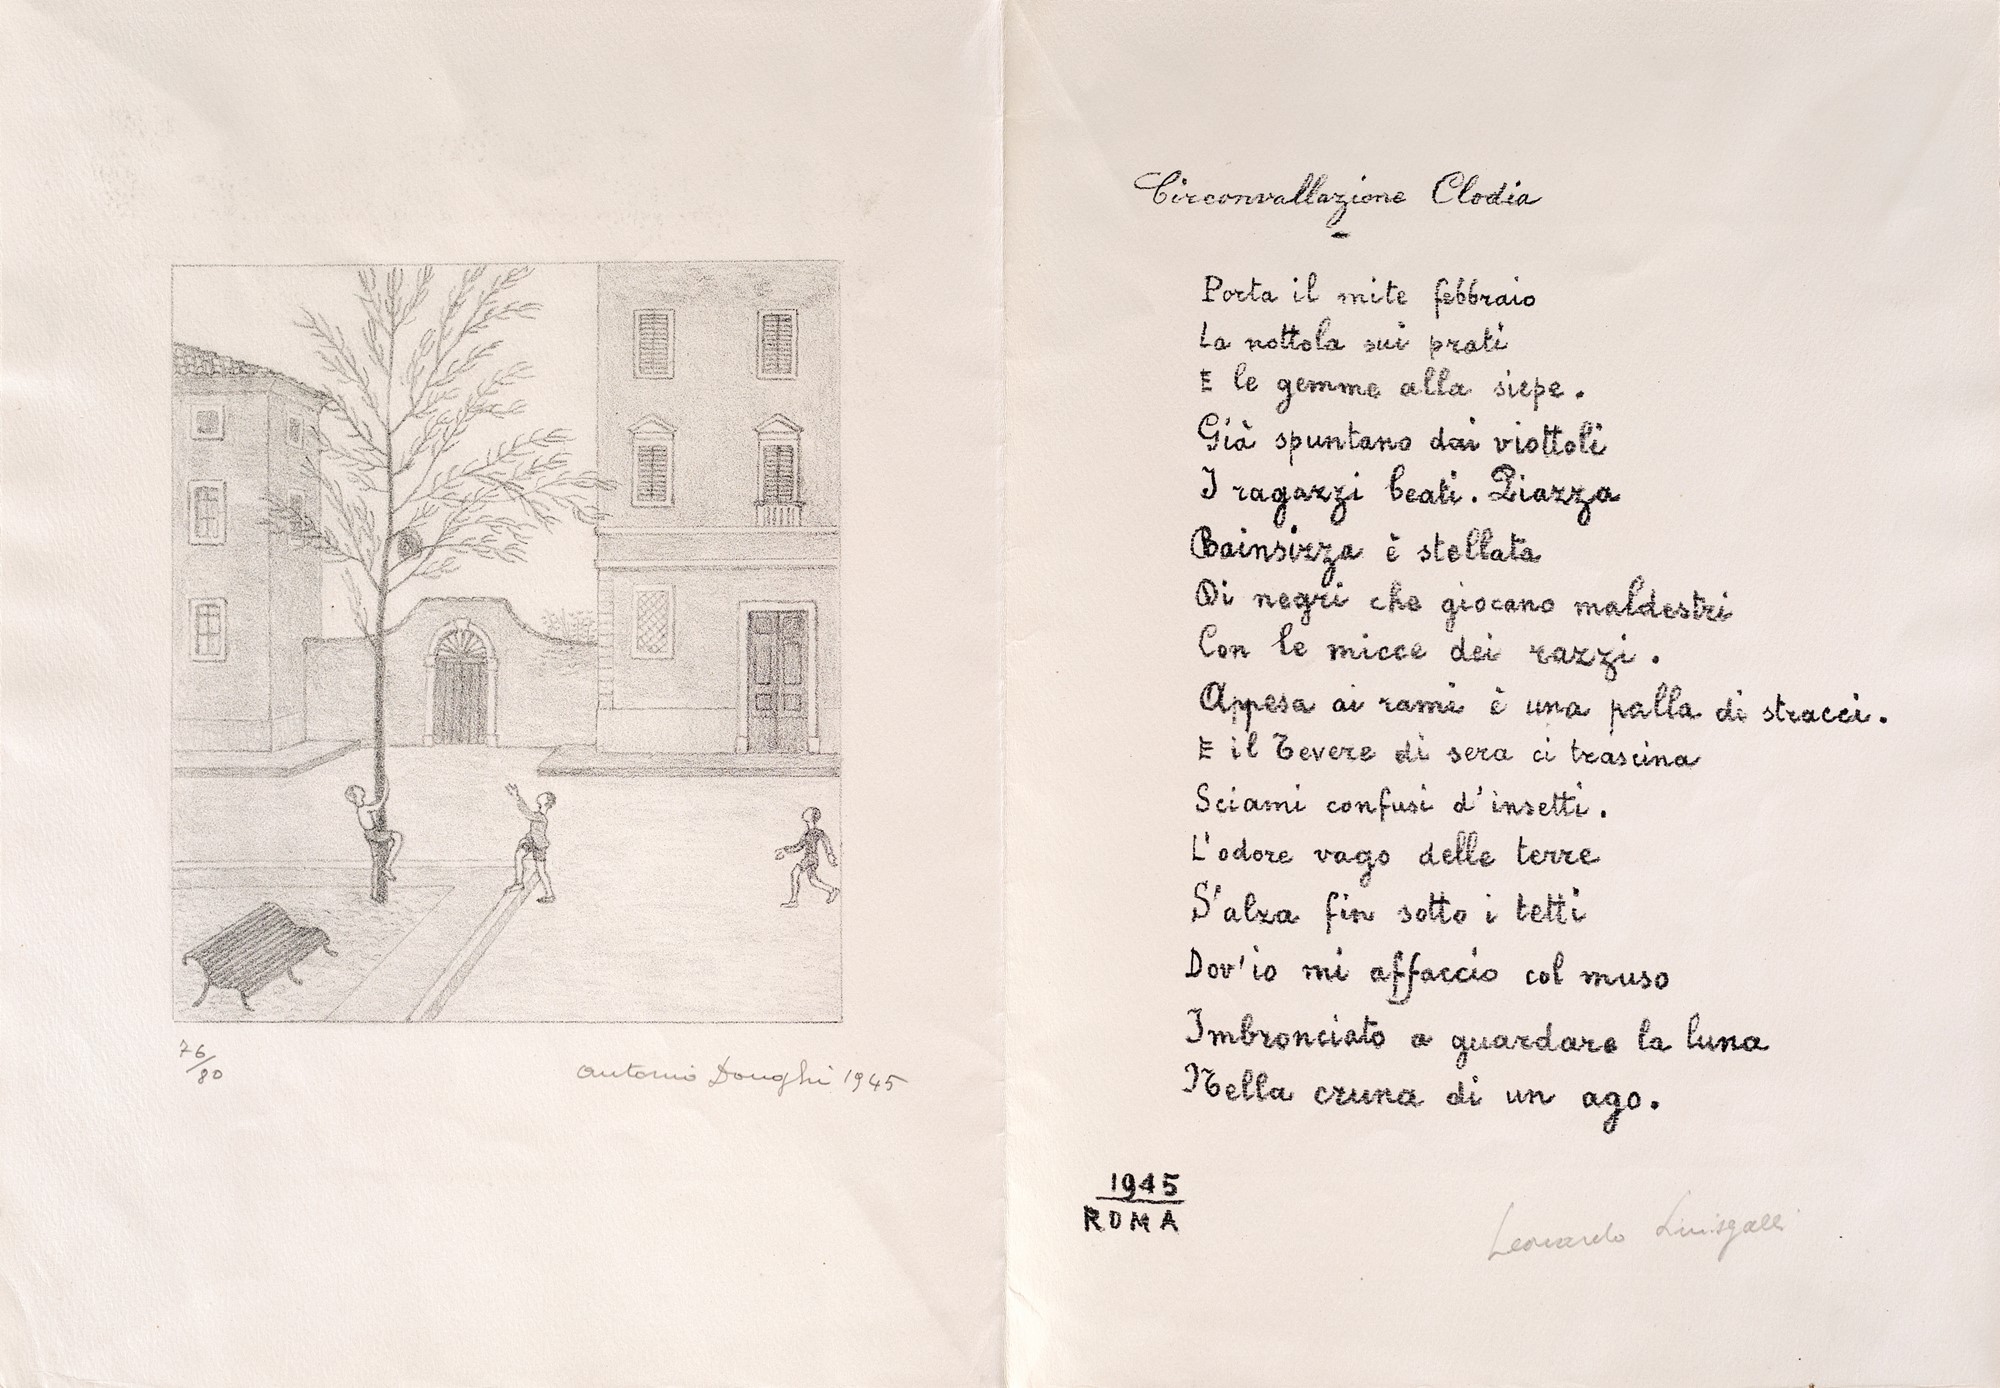 76/80
Antonio Donghi 1945
Circonvallazione Clodia
Porta il mite febbraio
La nottola sui prati
E le gemme alla siepe.
Già spuntano dai viottoli
I ragazzi beati. Piazza
Bainsizza è stellata
Di negri che giocano maldestri
Con le micce dei razzi.
Appesa ai rami è una palla di stracci.
E il Tevere di sera ci trascina
Sciami confusi d'insetti.
L'odore vago delle terre
S'alza fin sotto i tetti
Dov'io mi affaccio col muso
Imbronciato a guardare la luna
Nella cruna di un ago.
1945
ROMA
Leonardo Sinisgalli